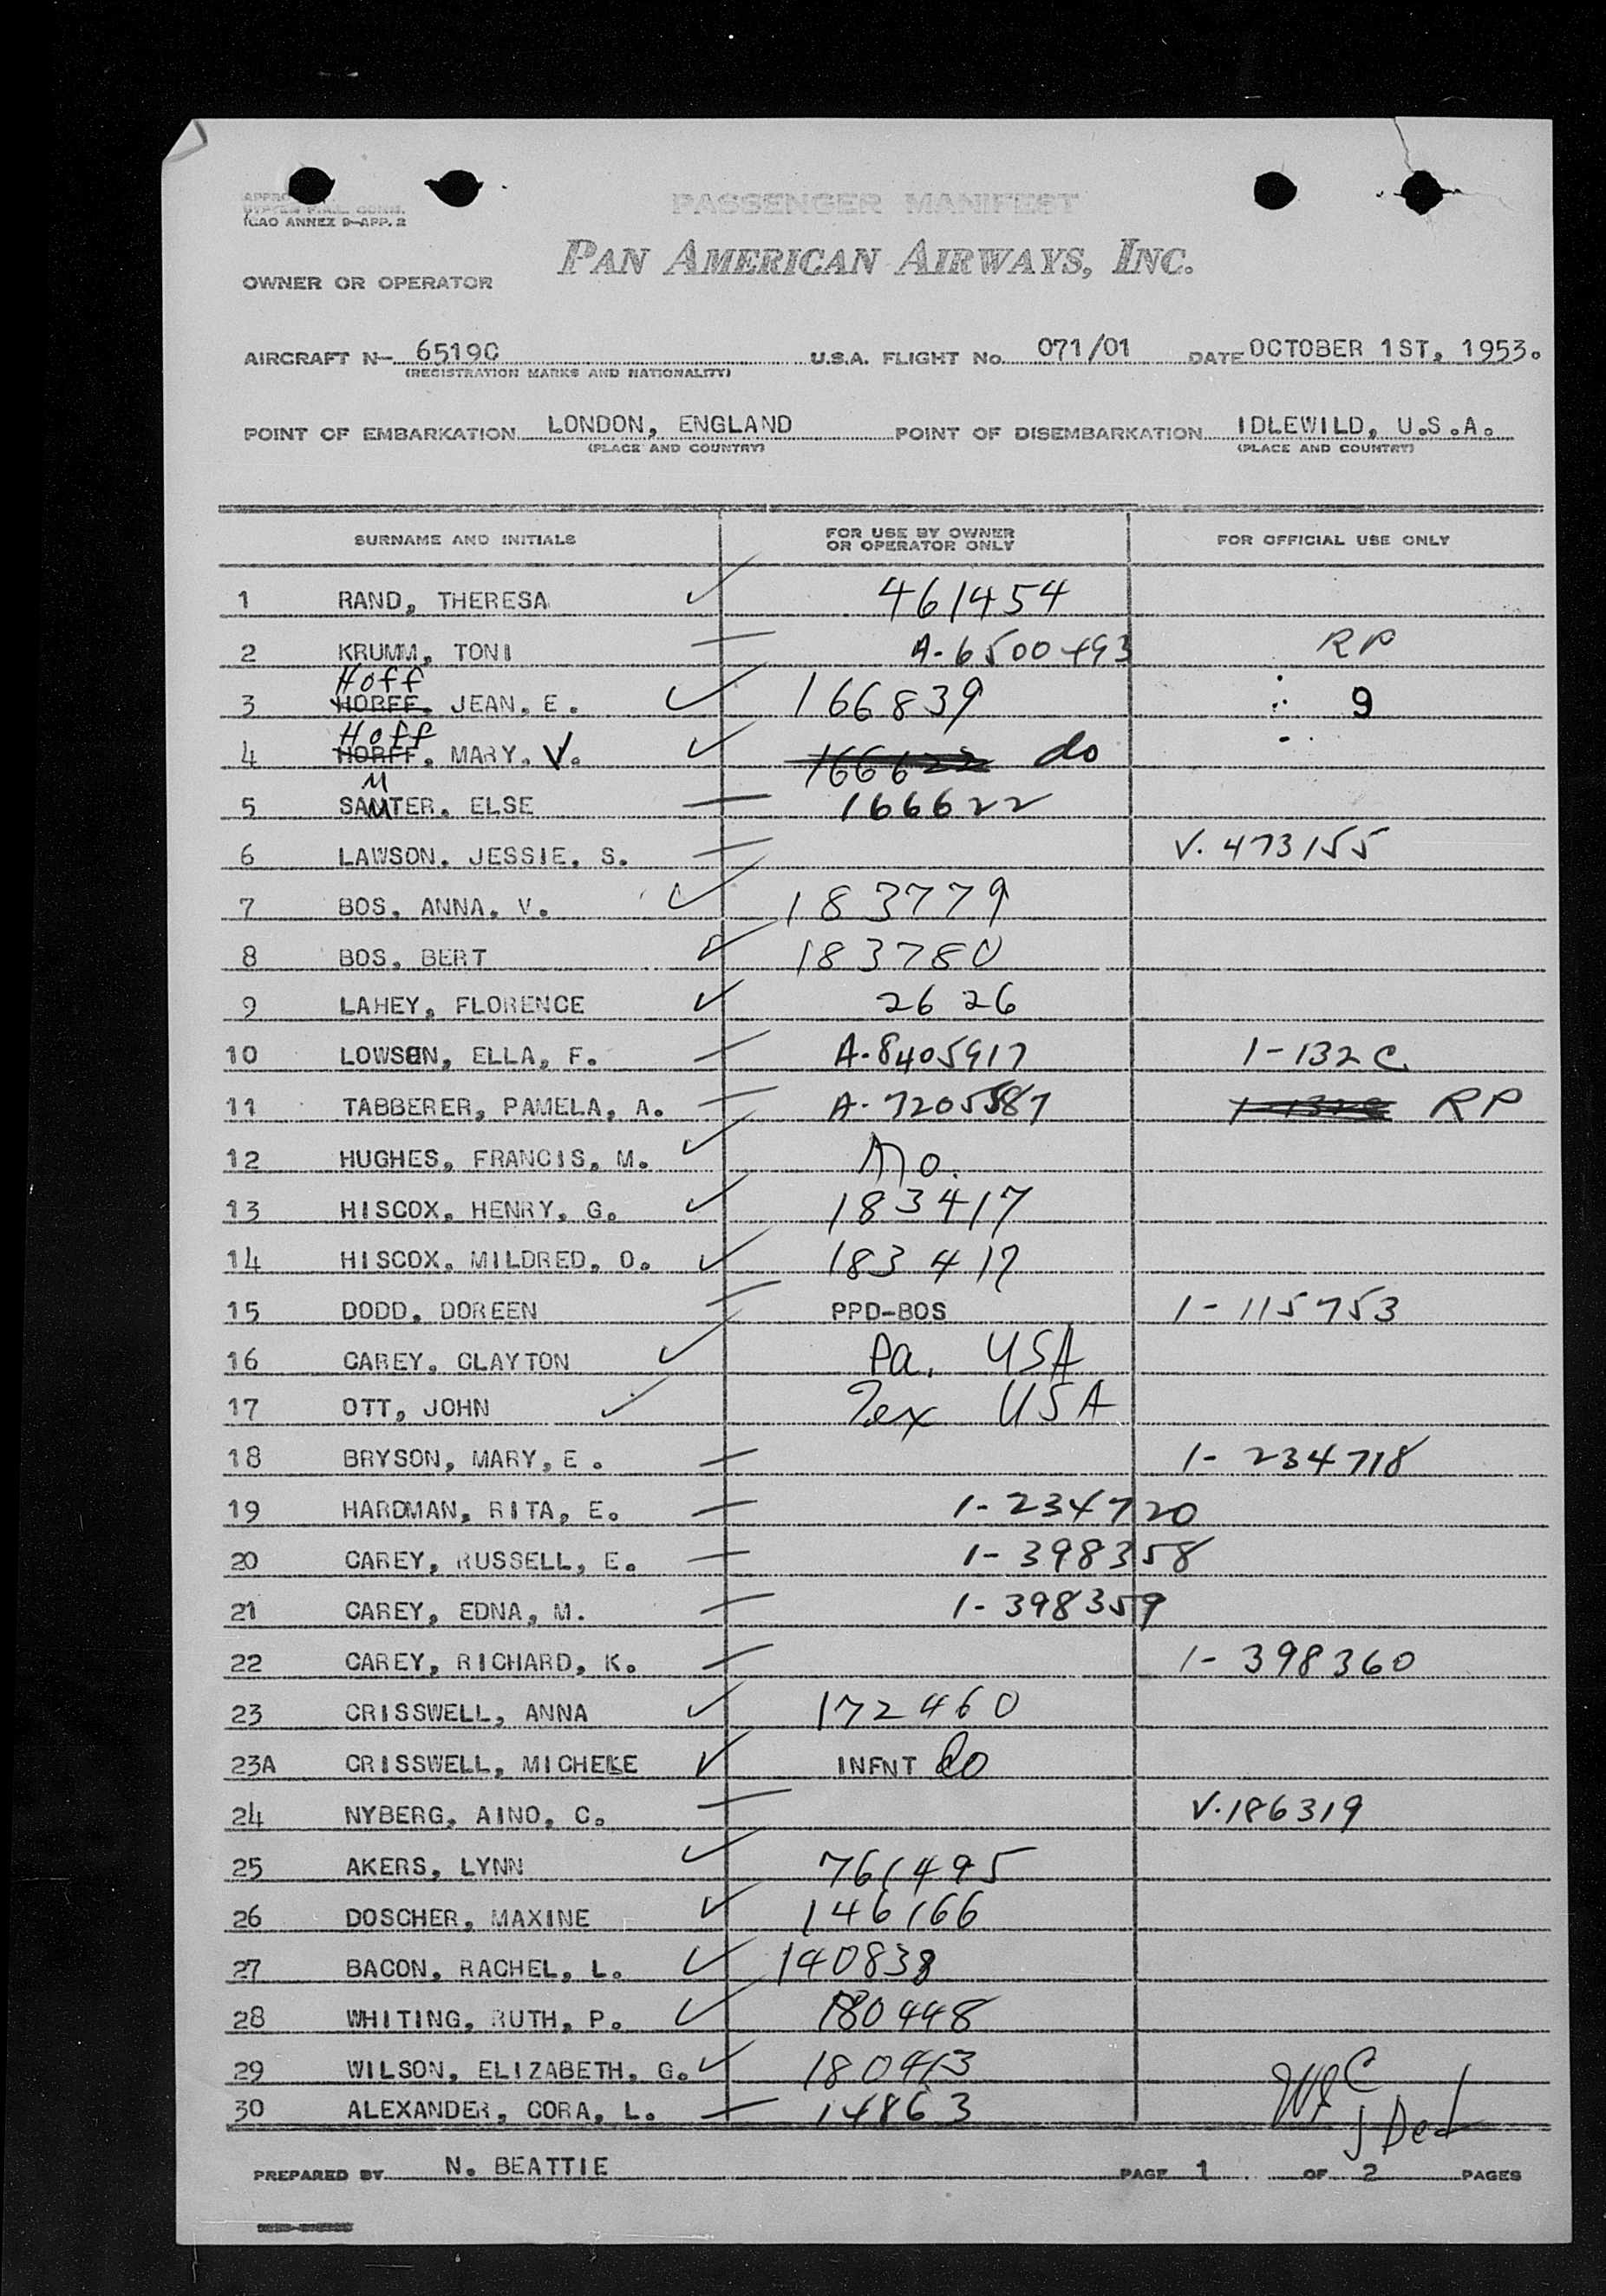 PASSENGER MANIFEST
ICAO ANNEX 9-APP. 2
PAN AMERICAN AIRWAYS, INC.
OWNER OR OPERATOR
AIRCRAFT N- 6519C U.S.A. FLIGHT No. 071/01 DATE OCTOBER 1ST, 1953.
(REGISTRATION MARKS AND NATIONALITY)
POINT OF EMBARKATION LONDON, ENGLAND POINT OF DISEMBARKATION IDLEWILD, U.S.A.
(PLACE AND COUNTRY) (PLACE AND COUNTRY)
SURNAME AND INITIALS FOR USE BY OWNER OR OPERATOR ONLY FOR OFFICIAL USE ONLY
1 RAND, THERESA ✓ 461454
2 KRUMM, TONI — A-6500493 RP
Hoff
3 HORFF, JEAN, E. ✓ 166839 9
Hoff
4 HORFF, MARY, V. ✓ 166622 do
M
5 SAMTER, ELSE — 166622
6 LAWSON, JESSIE, S. — V. 473155
7 BOS, ANNA, V. ✓ 183779
8 BOS, BERT ✓ 183780
9 LAHEY, FLORENCE ✓ 26 26
10 LOWSON, ELLA, F. — A-8405917 1-132 C.
11 TABBERER, PAMELA, A. — A-7205587 1-132c RP
12 HUGHES, FRANCIS, M. ✓ Mo.
13 HISCOX, HENRY, G. ✓ 183417
14 HISCOX, MILDRED, O. ✓ 183417
15 DODD, DOREEN — PPD-BOS 1-115753
16 CAREY, CLAYTON ✓ Pa. USA
17 OTT, JOHN ✓ Tex USA
18 BRYSON, MARY, E. — 1-234718
19 HARDMAN, RITA, E. — 1-234720
20 CAREY, RUSSELL, E. — 1-398358
21 CAREY, EDNA, M. — 1-398359
22 CAREY, RICHARD, K. — 1-398360
23 CRISSWELL, ANNA ✓ 172460
23A CRISSWELL, MICHELE ✓ INFNT do
24 NYBERG, AINO, C. — V.186319
25 AKERS, LYNN ✓ 761495
26 DOSCHER, MAXINE ✓ 146166
27 BACON, RACHEL, L. ✓ 140838
28 WHITING, RUTH, P. ✓ 180448
29 WILSON, ELIZABETH, G. ✓ 180413
30 ALEXANDER, CORA, L. — 14863
PREPARED BY N. BEATTIE PAGE 1 OF 2 PAGES